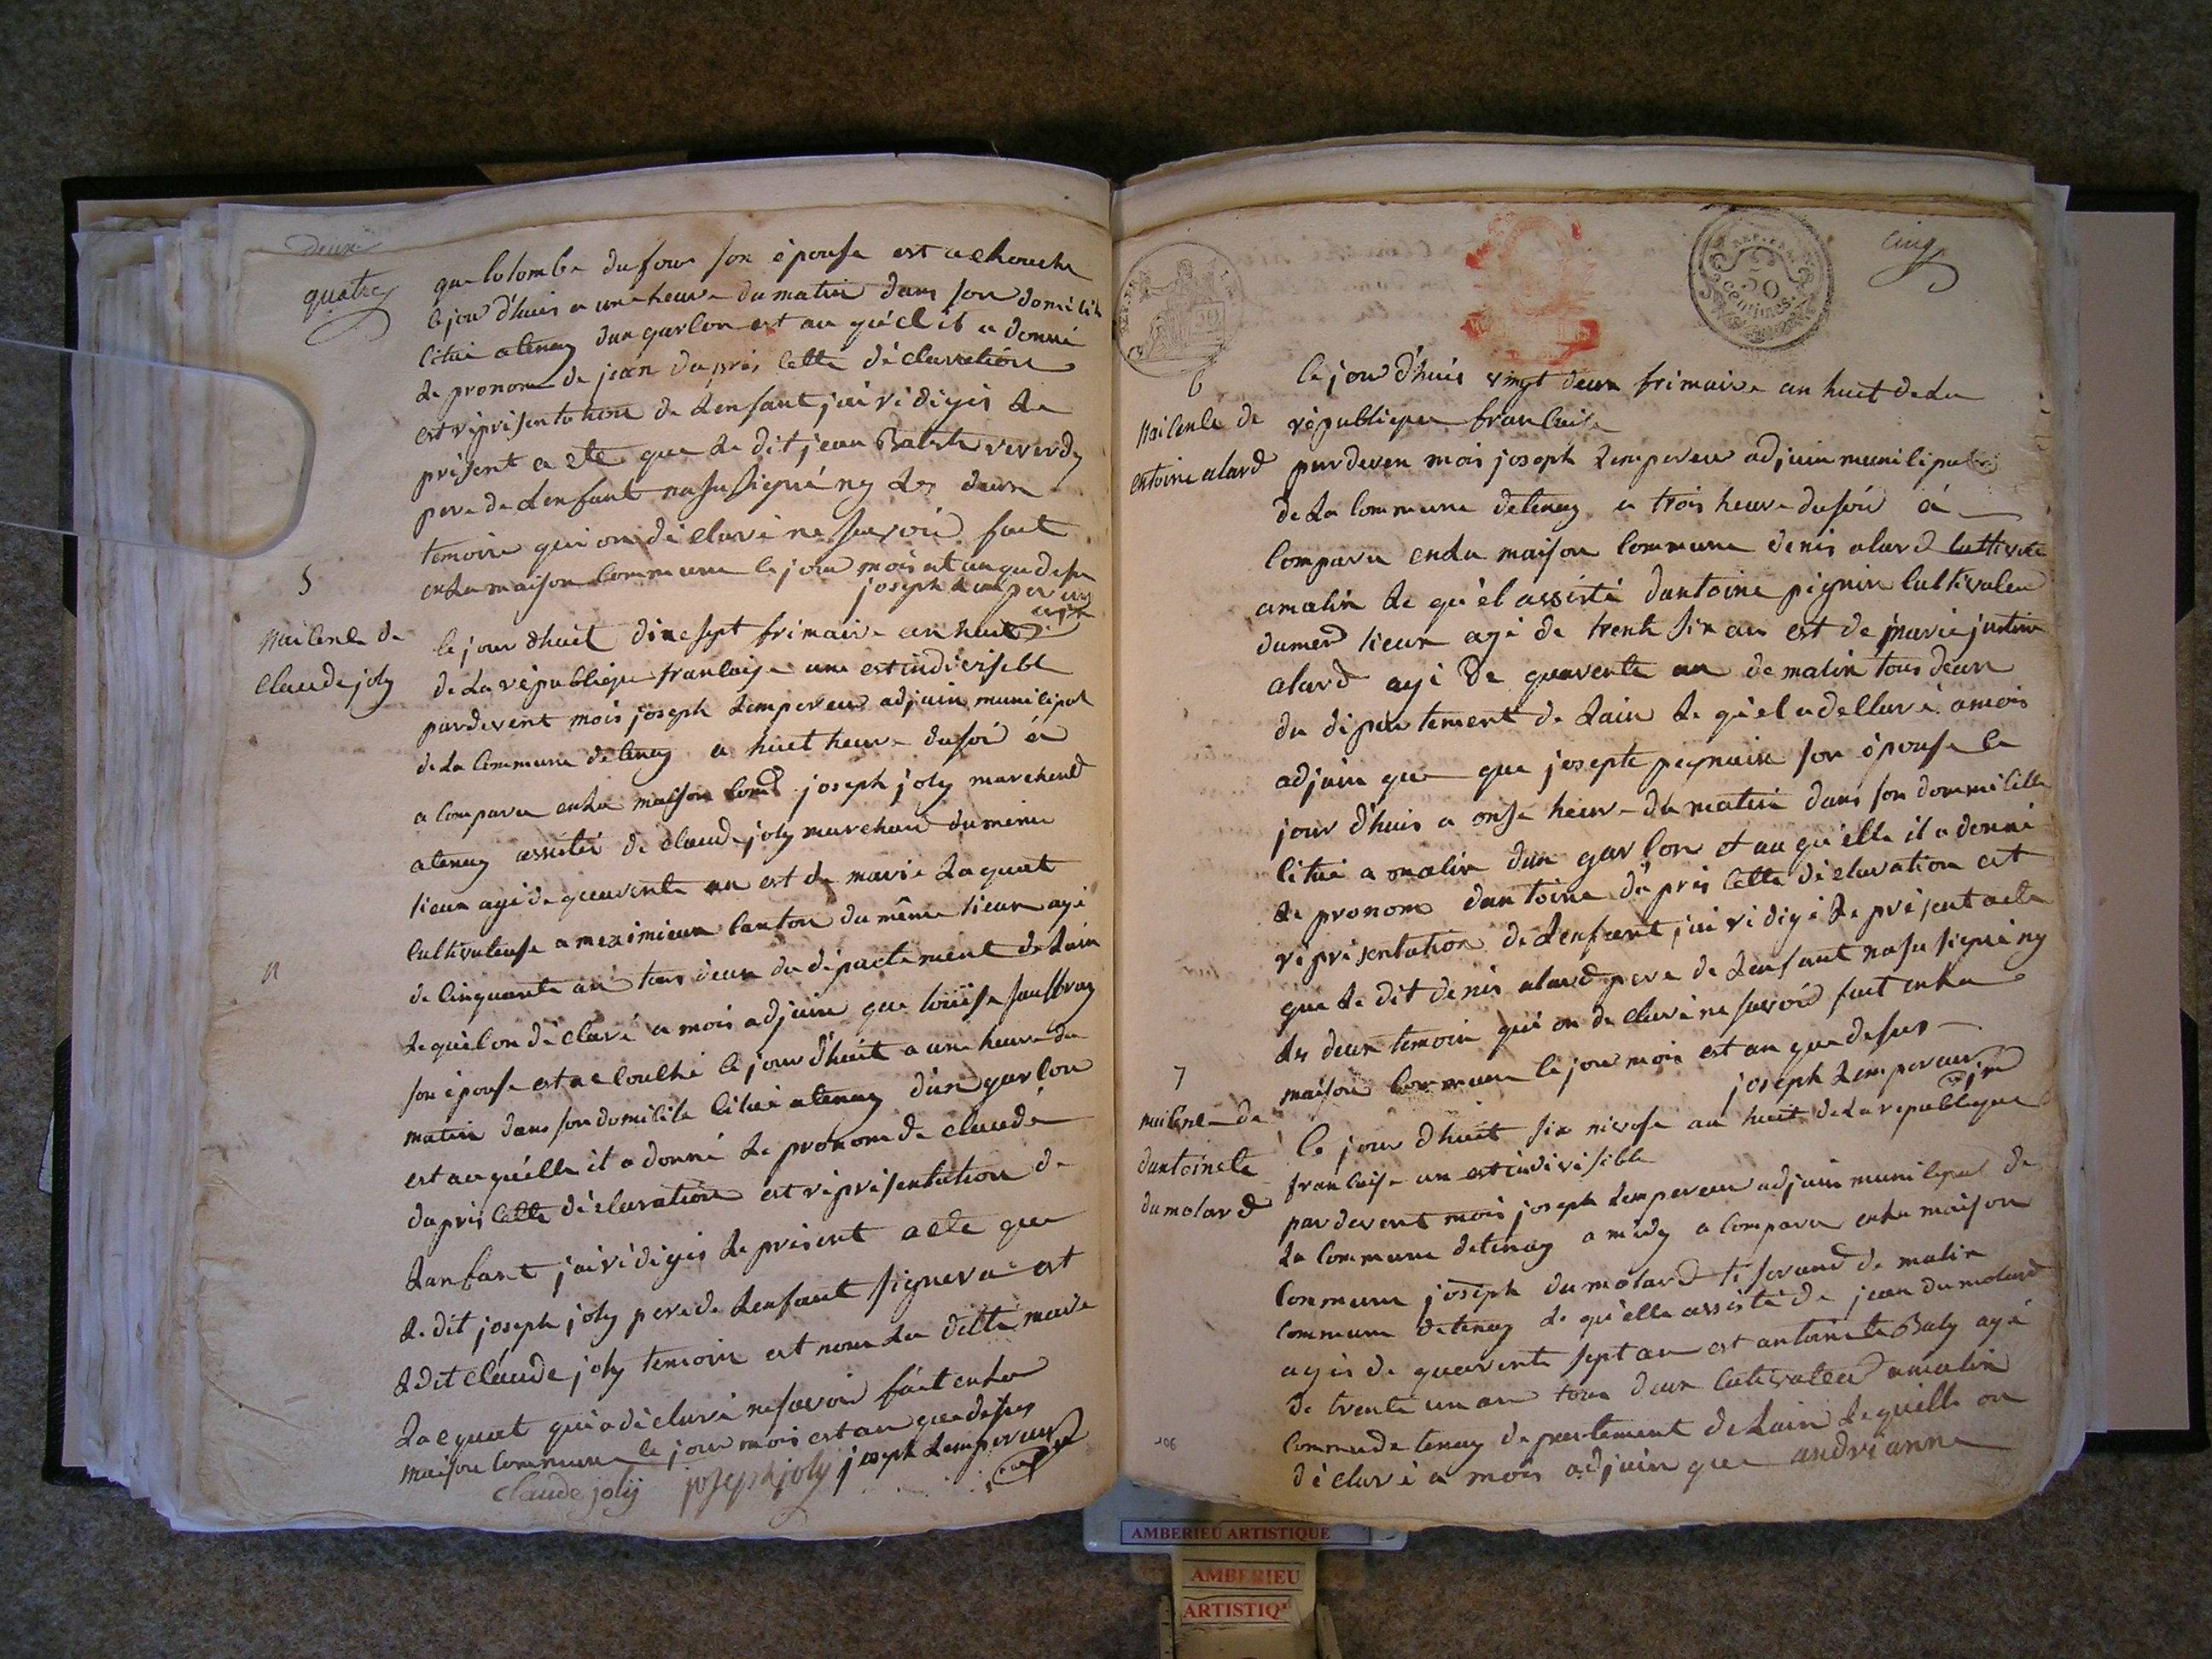 deux
quatre
que Colombe dufour son épouse est achouche
cejour d'huis a une heure du matin dans son domicile
citué atenay dun garson est au quéel il a donné
le pronom de jean dapres cette déclaration
est représentation de lenfant jai rédigés le
présent acte que le dit jean Batiste reverdy
pere de lenfant na su signé ny les deux
temoin qui on déclaré ne savoir fait
en la maison commune le jour mois et an que desu
joseph Lempereur
adjin
5
Naicence de
Claude joly
le jour dhuit dixsept frimaire an huit
de la république francaise une est indivisible
pardevent mois joseph Lempereur adjuin municipal
de la commune detenay a huit heure du soi á
a comparu en la maison com joseph joly marchend
atenay assisté de claude joly marchand du même
lieux agé de quarente an est de marie Laquat
cultivateuse a meximieux canton du même lieux agé
de cinquante an tous deux du département de Lain
lequel on déclaré a mois adjuin que louise
son épouse est acouché le jour d'huit a une heure du
matin dans son domicile citué atenay d'un garson
est au quélle il a donné le pronom de claude
dapres cette déclaration est représentation de
Lanfant jai rédigés le présent acte que
le dit joseph joly pere de lenfant signera est
le dit claude joly temoin est non la ditte marie
Lacquat qui a déclaré ne savoir fait en la
maison commune le jour mois est an que desus
claude jolÿ joseph joly joseph Lempereur
cinq
REP. FRA
50
centimes
6
Naicence de
entoine alard
le jour d'huis vingt deux frimaire an huit de La
république francaise
pardeven mois joseph Lempereur adjuin municipal
de La commune detenay a trois heure du soir á
comparu en La maison commune denis alard cultivate
amalix le qu'el assisté dantoine pignin cultivateu
dumem lieux agé de trente six an est de marie justine
alard agé de quarente an de malix tous deux
du département de Lain le qu'el a dellaré a mois
adjuin que que josepte pegnuin son épouse le
jour d'huis a onse heure du matin dans son dommicille
citué a malix dun garson et au qu'elle il a donné
le pronom dantoine dapres cette déclaration est
représentation de lenfant jai rédigé le présent acte
que le dit denis alard pere de lenfant na su signé ny
les deux temoin qui on declaré ne savoir fait en La
maison commune le jour mois est an que desus
joseph Lempereur
adjin
7
naicence de
dantoinete
dumolard
le jour dhuit six nivose an huit de La république
francaise une est indivisible
pardevent mois joseph Lempereur adjuin municipal de
La commune detenay a midy a comparu en la maison
commune joseph dumolard tiserand de malix
commune detenay le qu'elle assisté de jean dumolard
agés de quarente sept an est antoinete Baly agé
de trente un an tous deux cultivateu amalix
commune detenay departement de Lain lequelle on
déclaré a mois adjuin que andrianne
106
AMBERIEU ARTISTIQUE
AMBERIEU
ARTISTIQ